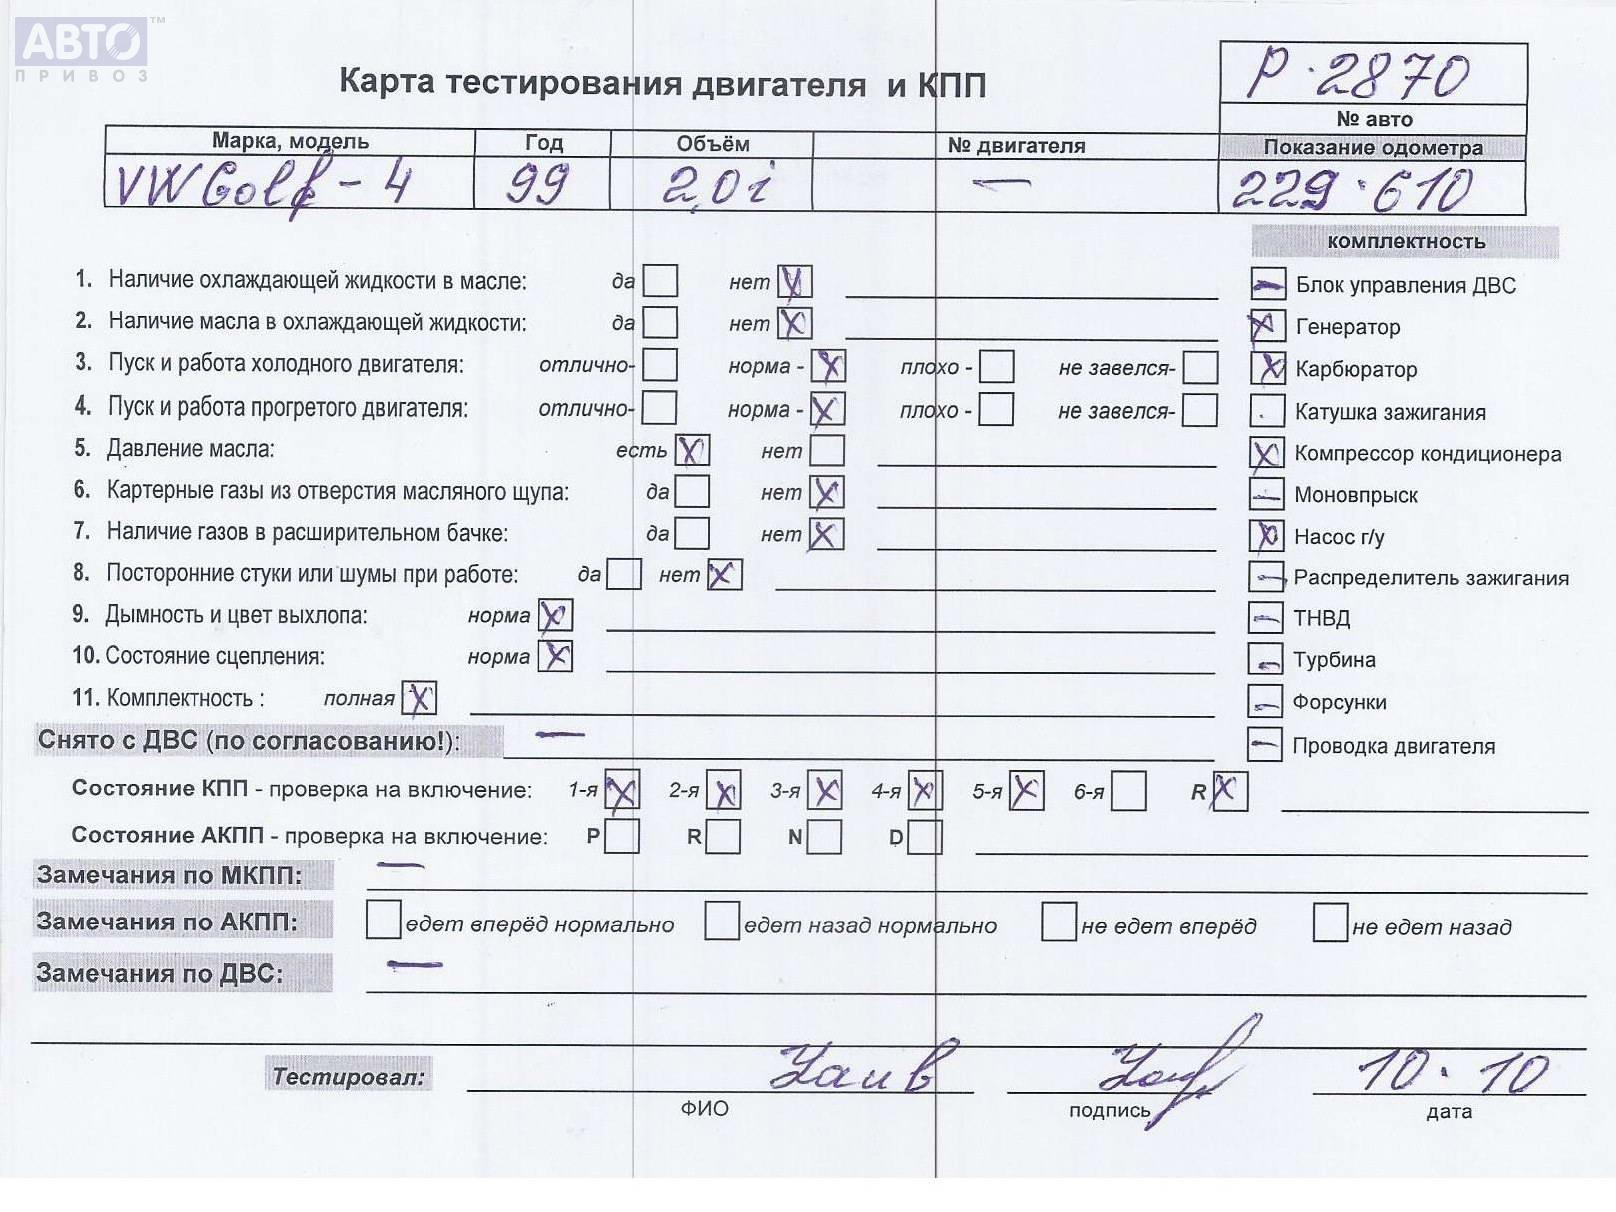 АВТО™
ПРИВОЗ
Карта тестирования двигателя и КПП
Р·2870
№ авто
Марка, модель Год Объём № двигателя Показание одометра
VW Golf - 4 99 2,0 i — 229·610
комплектность
1. Наличие охлаждающей жидкости в масле: да нет Блок управления ДВС
2. Наличие масла в охлаждающей жидкости: да нет Генератор
3. Пуск и работа холодного двигателя: отлично- норма - плохо - не завелся- Карбюратор
4. Пуск и работа прогретого двигателя: отлично- норма - плохо - не завелся- Катушка зажигания
5. Давление масла: есть нет Компрессор кондиционера
6. Картерные газы из отверстия масляного щупа: да нет Моновпрыск
7. Наличие газов в расширительном бачке: да нет Насос г/у
8. Посторонние стуки или шумы при работе: да нет Распределитель зажигания
9. Дымность и цвет выхлопа: норма ТНВД
10. Состояние сцепления: норма Турбина
11. Комплектность : полная Форсунки
Снято с ДВС (по согласованию!): — Проводка двигателя
Состояние КПП - проверка на включение: 1-я 2-я 3-я 4-я 5-я 6-я R
Состояние АКПП - проверка на включение: P R N D
Замечания по МКПП: —
Замечания по АКПП: едет вперёд нормально едет назад нормально не едет вперёд не едет назад
Замечания по ДВС: —
Тестировал: 10.10
ФИО подпись дата